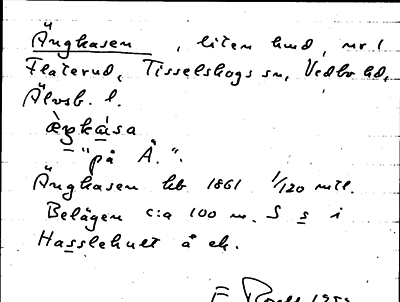 Ängkasen, liten lund, nr 1
Flaterud, Tisselskogs sn, Vedbo hd,
Älvsb. l.
æ̀ŋkàsa
"på Ä.".
Ängkasen hb 1861 1/120 mtl.
Belägen c:a 100 m. S s i
Hasslehult å ek.